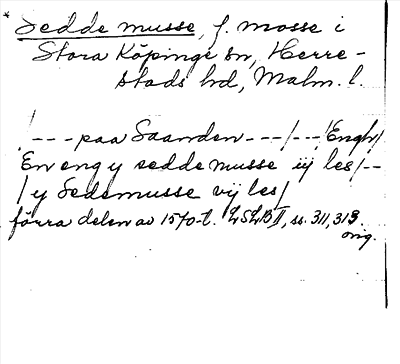 * Sedde musse, f. mosse i
Stora Köpinge sn, Herre-
stads hd, Malm. l.
/--- paa Saanden ---/--- /Engh/
En eng y sedde musse iij les/--
/y Sedemusse vij les/
förra delen av 1570-t. LSLB II, ss. 311, 313.
orig.